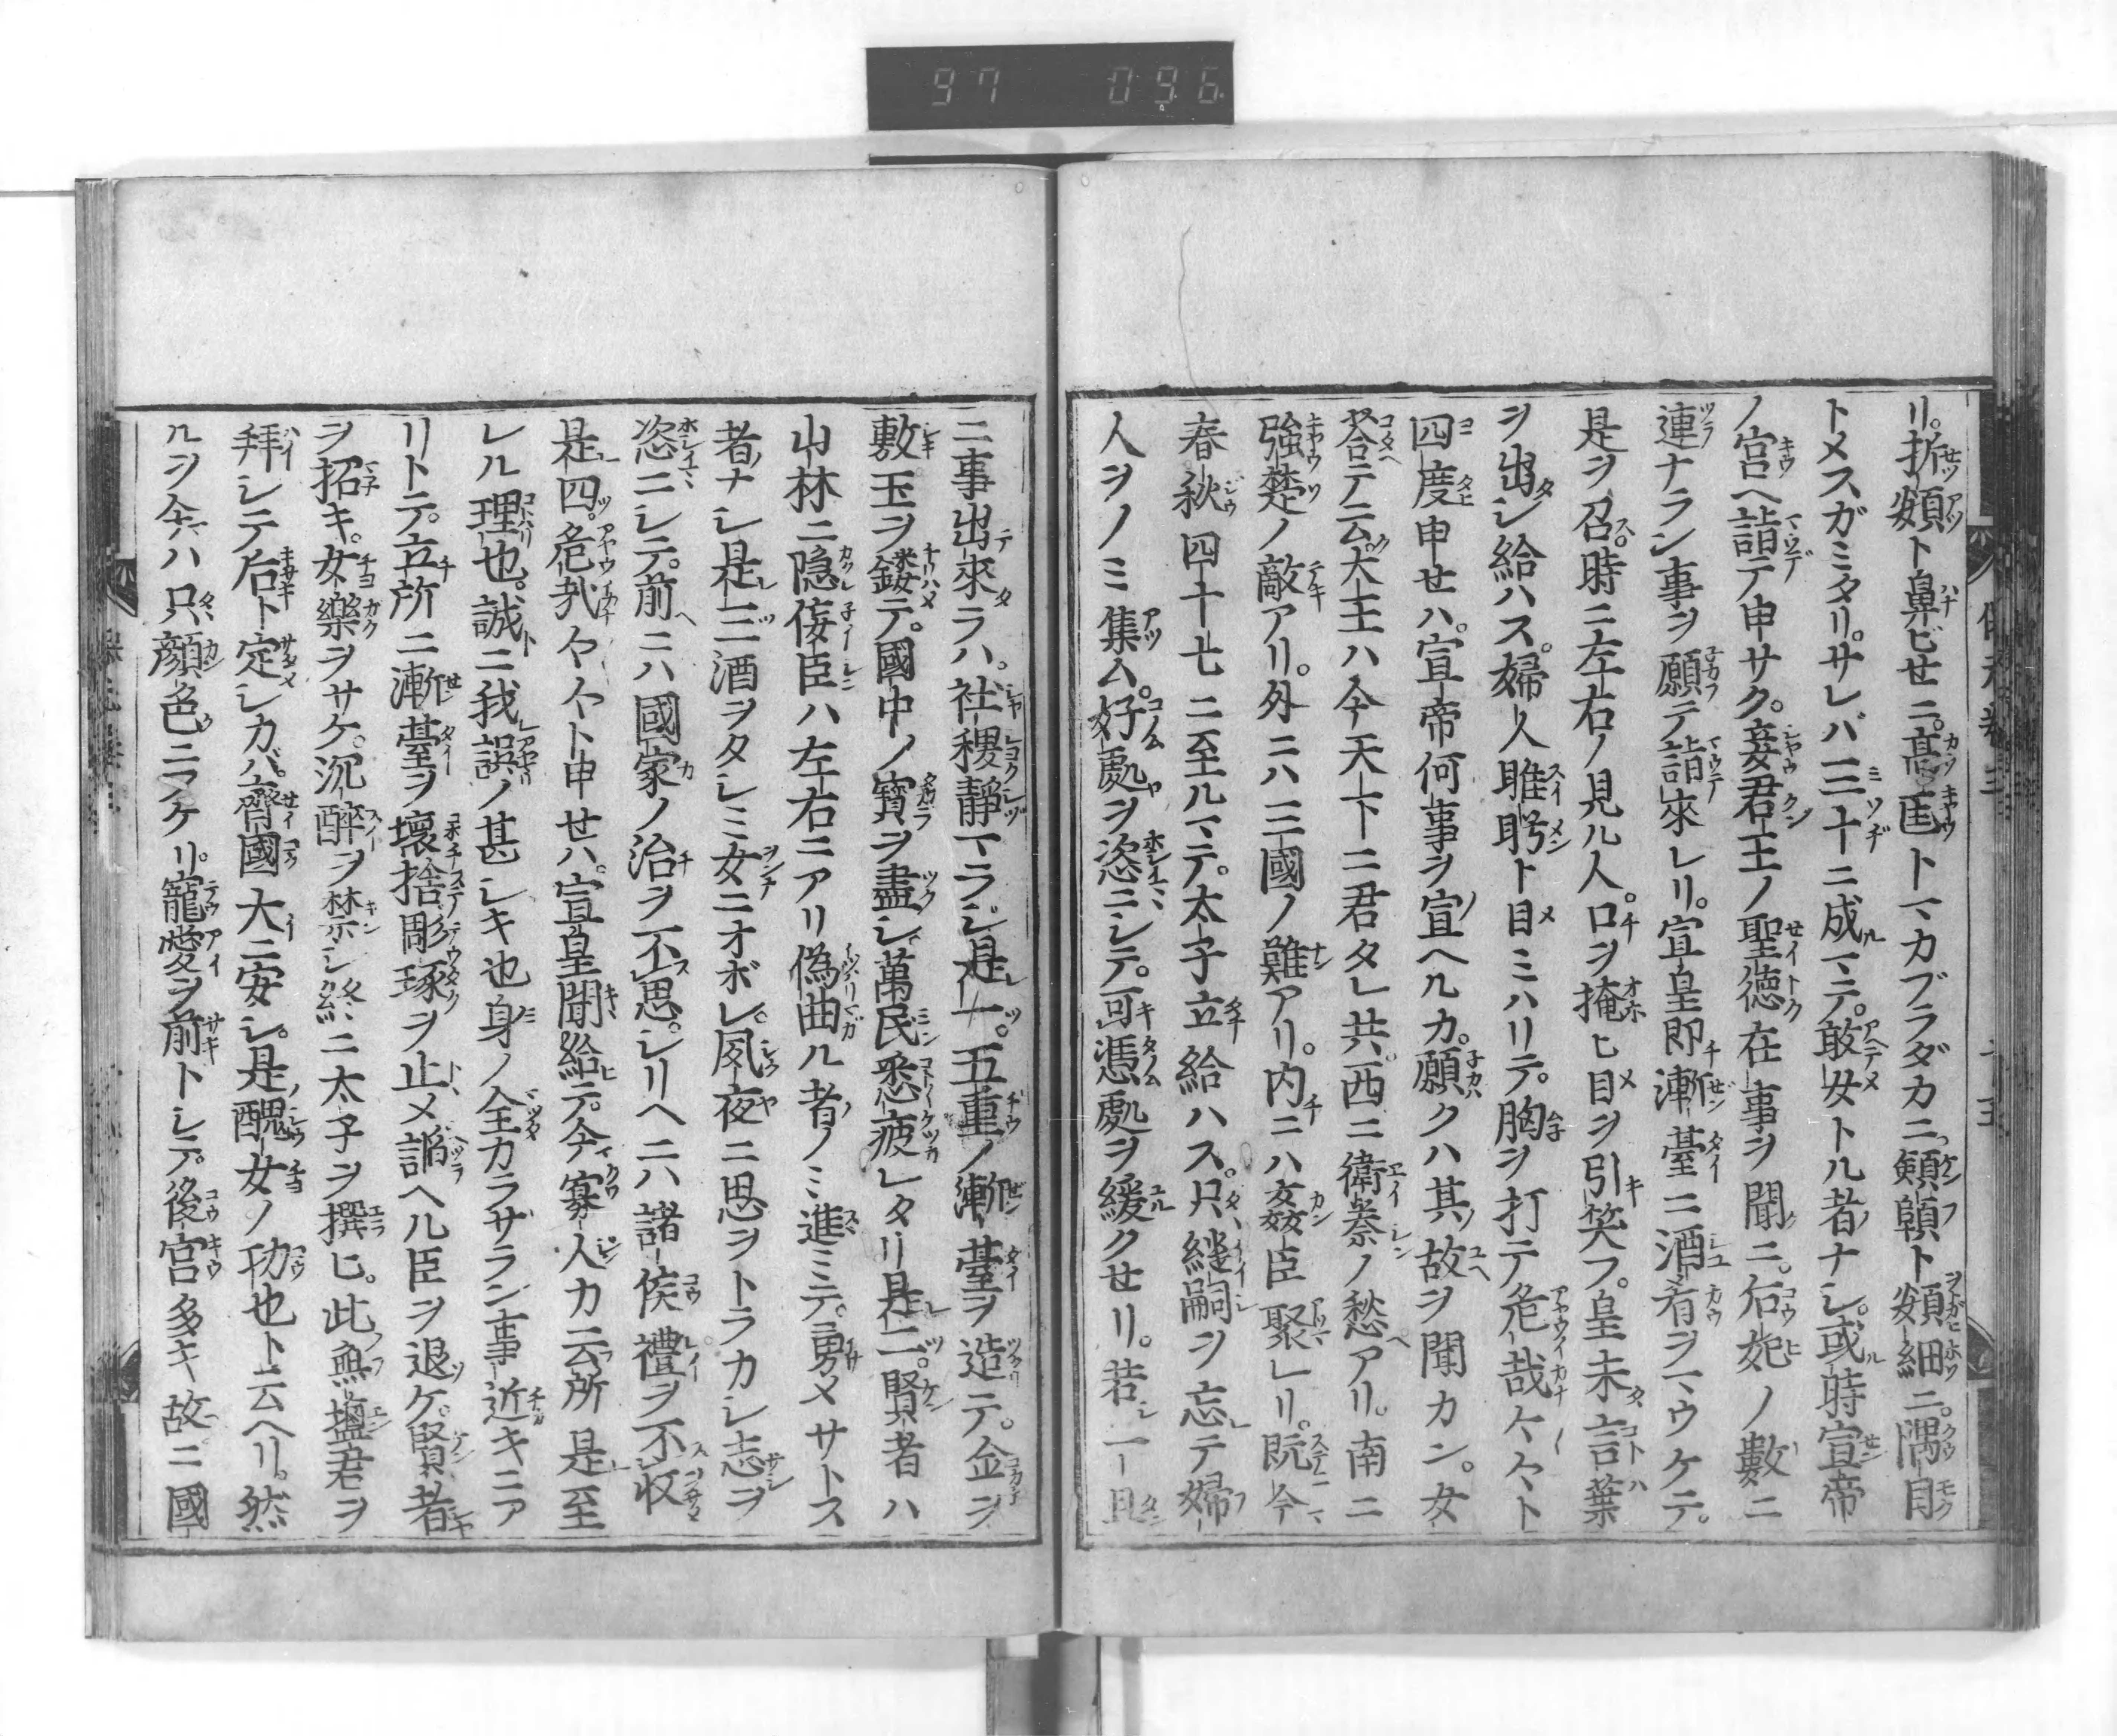 97 096
リ。折頞ト鼻ビセニ。高匡トマカブラダカニ。顩顊ト頬細ニ。隅目
トメスガミタリ。サレバ三十ニ成マテ。敢女トル者ナシ。或時宣帝
ノ宮ヘ詣テ申サク。妾君王ノ聖徳在事ヲ聞ニ。后妃ノ數ニ
連ナラン事ヲ願テ詣來レリ。宣皇即漸臺ニ酒肴ヲマウケテ。
是ヲ召時ニ左右ノ見ル人。口ヲ掩ヒ目ヲ引笑フ。皇未言葉
ヲ出シ給ハス。婦人睢盱ト目ミハリテ。胸ヲ打テ危哉々々ト
四度申セハ。宣帝何事ヲ宣ヘルカ。願クハ其故ヲ聞カン。女
荅テ云。大王ハ今天下ニ君タレ共。西ニ衛秦ノ愁アリ。南ニ
強楚ノ敵アリ。外ニハ三國ノ難アリ。内ニハ姦臣聚レリ。既今
春秋四十七ニ至ルマテ。太子立給ハス。只継嗣ヲ忘テ婦
人ヲノミ集ム。好処ヲ恣ニシテ。可憑処ヲ緩クせリ。若一旦
ニ事出來ラハ。社稷靜マラシ是一ツ。五重ノ漸臺ヲ造テ。金ヲ
敷玉ヲ鏤テ。國中ノ寳ヲ盡シ萬民悉疲レタリ是二ツ。賢者ハ
山林ニ隠侫臣ハ左右ニアリ偽曲ル者ノミ進ミテ。勇メサトス
者ナシ是三ツ酒ヲタシミ女ニオボレ。夙夜ニ思ヲトラカシ志ヲ
恣ニシテ。前ニハ國家ノ治ヲ不思。シリヘニハ諸侯禮ヲ不收
是四ツ。危哉々々ト申せハ。宣皇聞給テ。今寡人カ云所是至
レル理也。誠ニ我誤ノ甚シキ也身ノ全カラザラン事近キニア
リトテ。立所ニ漸臺ヲ壊捨彫琢ヲ止メ諂ヘル臣ヲ退ケ。賢者
ヲ招キ。女樂ヲサケ。沉醉ヲ禁シ終ニ太子ヲ撰ヒ。此無塩君ヲ
拜シテ后ト定シカバ。齊國大ニ安シ。是醜女ノ功也ト云ヘリ。然
ルヲ今ハ只顔色ニマケリ。寵愛ヲ前トシテ。後宮多キ故ニ國